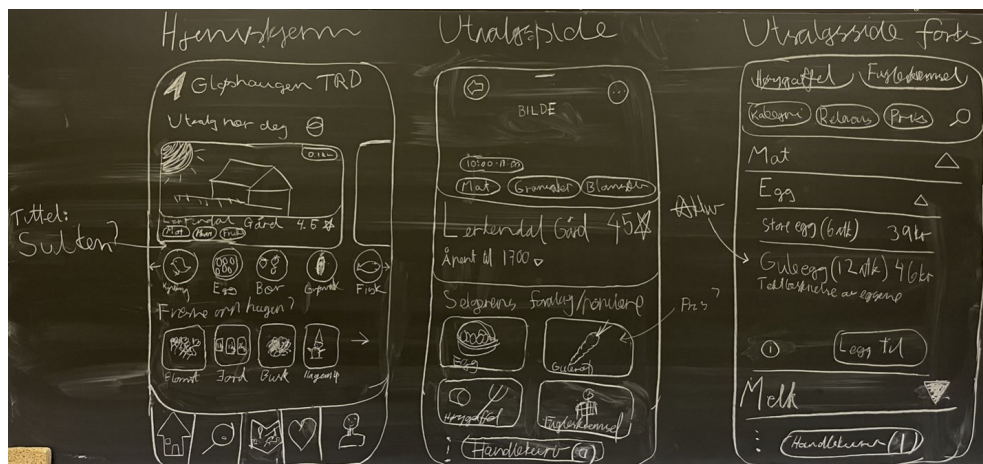 Hjemskjerm
Gløshaugen TRD
Utvalg nær deg
0.1km
Lertendal Gård 4.5
Mat
Frukt
Tittel:
Sulten?
Kylling
Egg
Bær
Fisk
Friske opp hagen?
Blomst
Jord
Busk
Utvalgspide
BILDE
10:00-17:00
Mat
Grønnsaker
Blomster
Lertendal Gård 45
Åpent til 1700
Selgerens forslag/populære
Egg
Gulerot
Høygaffel
Fugleskremsel
Handlekurv
Pris?
Utvalgsside forts
Høygaffel
Fugleskremsel
Kategori
Relevans
Pris
Mat
Egg
Store egg (6stk) 39kr
Gule egg (12stk) 46kr
Tekstbeskrivelse av eggene
1
Legg til
Melk
Handlekurv 1